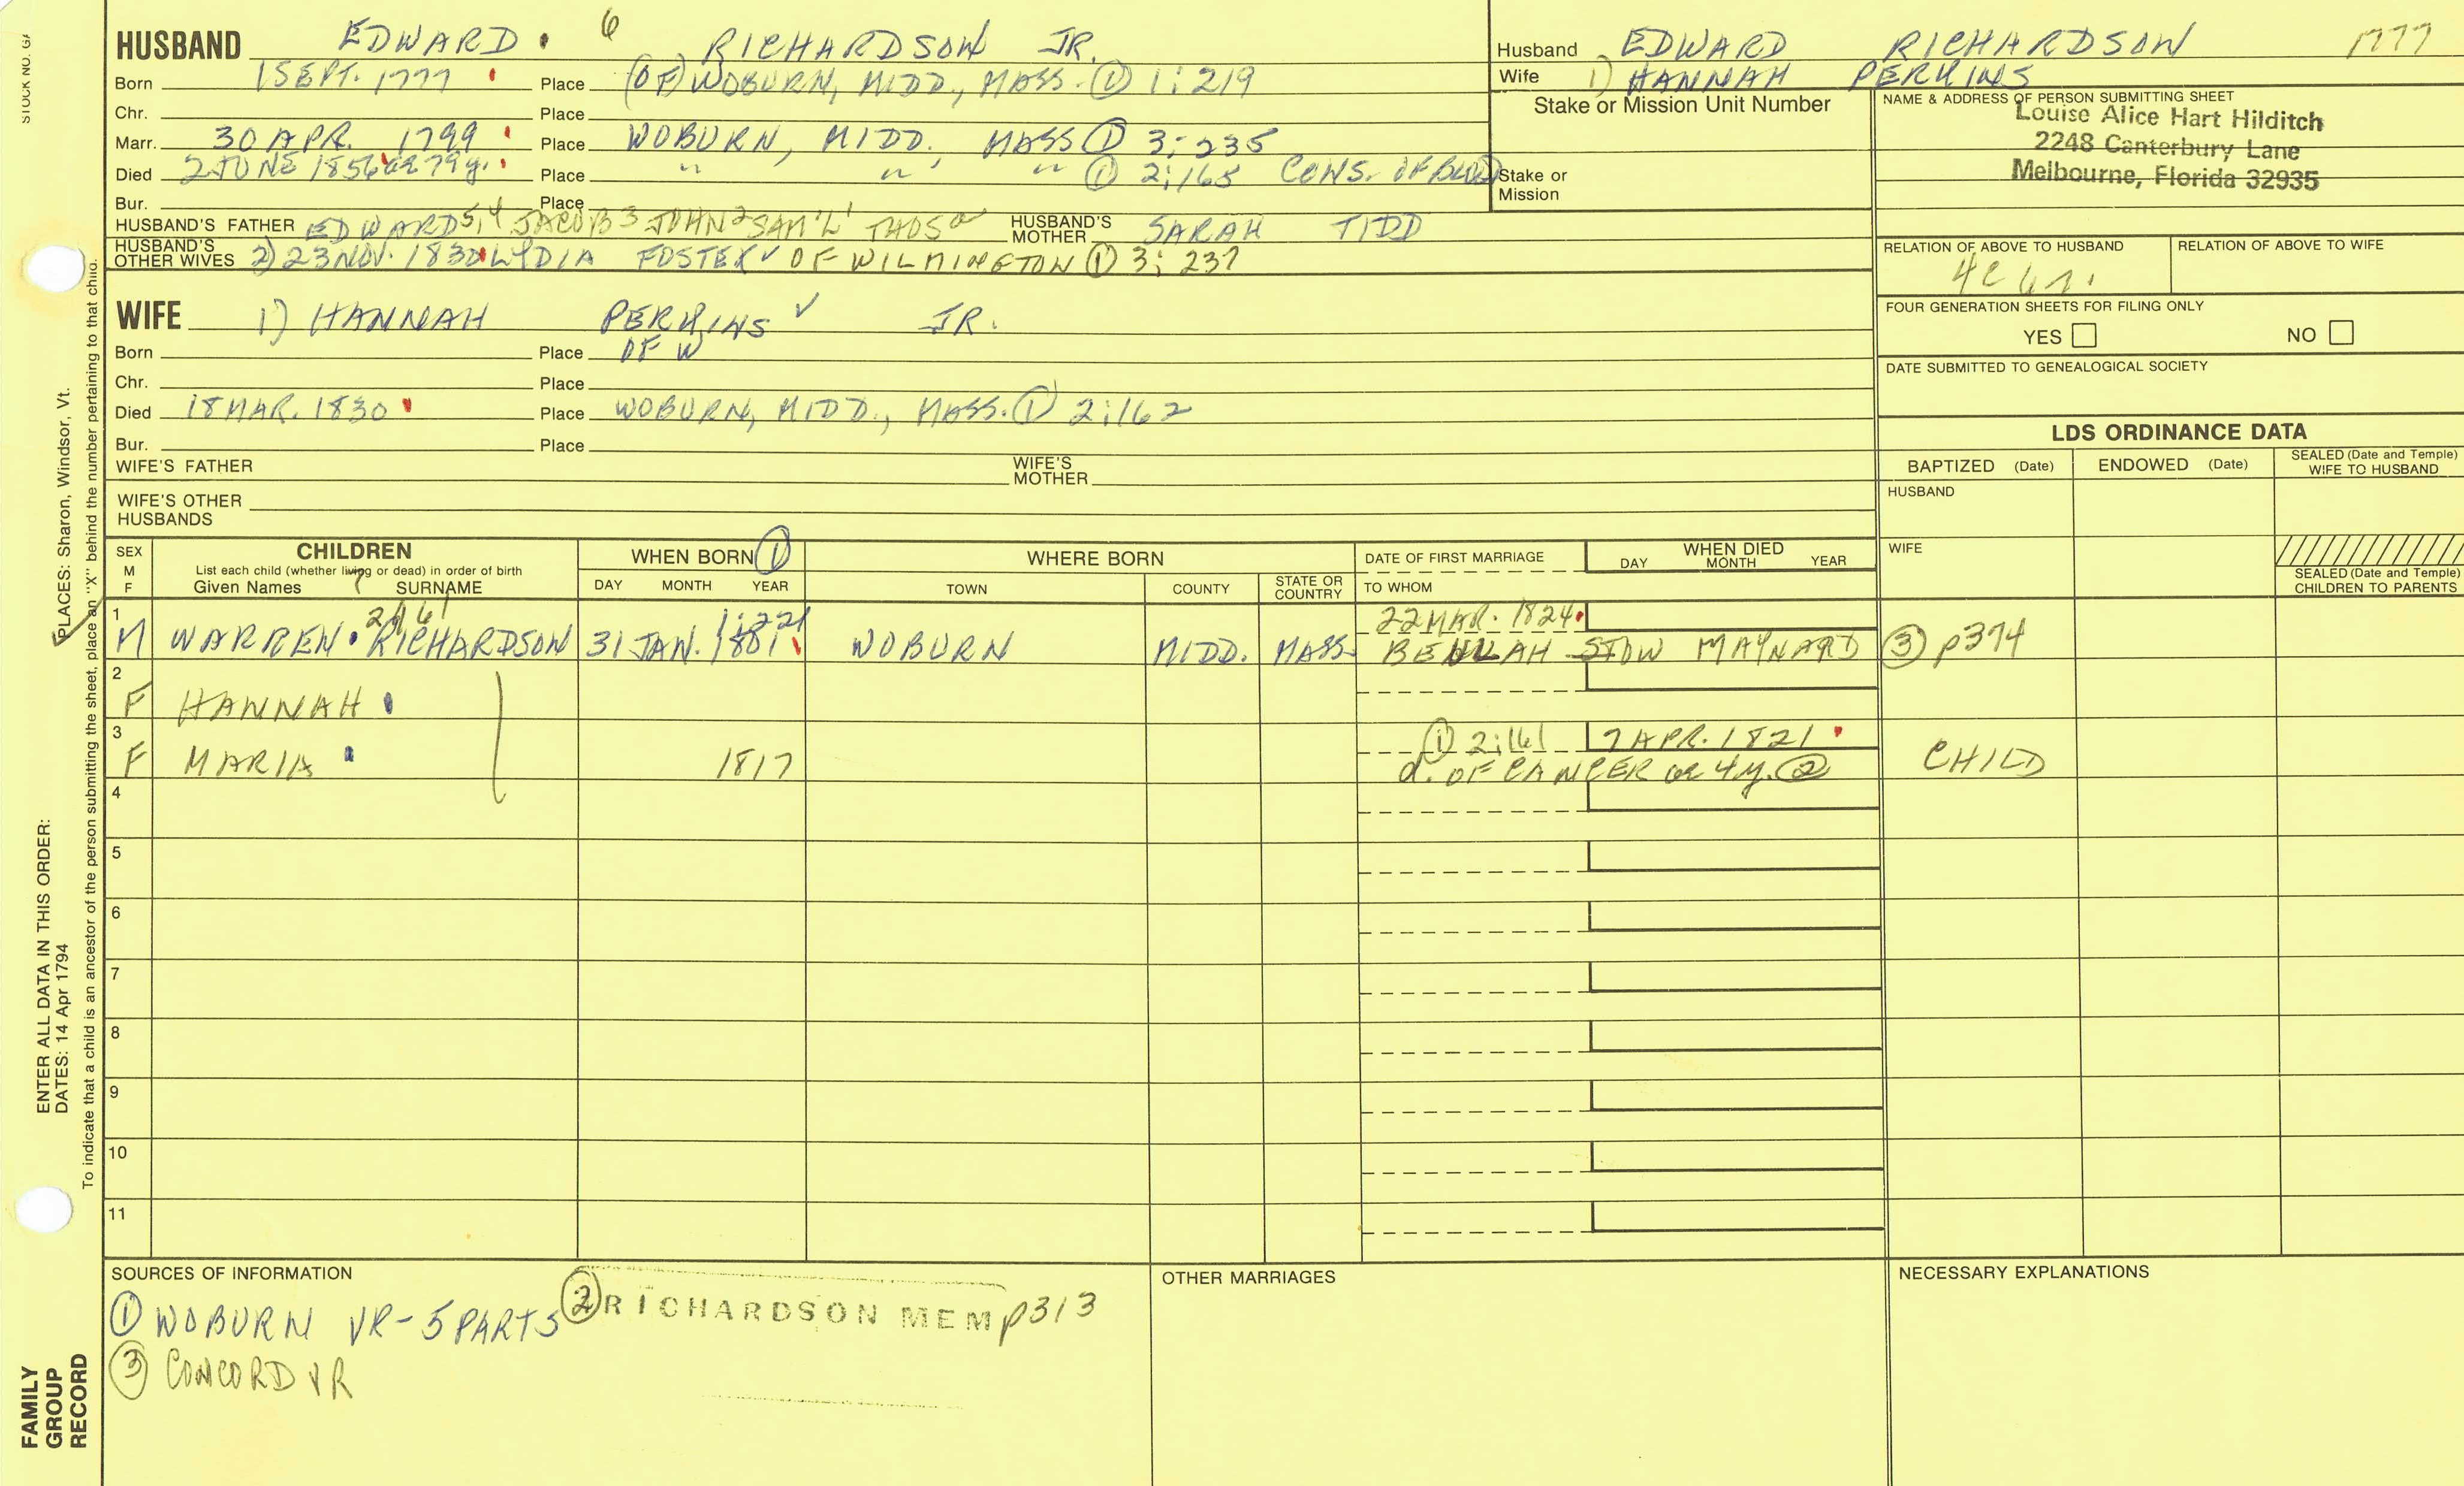 STOCK NO. GF
HUSBAND EDWARD • 6 RICHARDSON JR.
Born 1 SEPT. 1777 Place (OF) WOBURN, MIDD., MASS. ① 1:219
Chr. Place
Marr. 30 APR. 1799 Place WOBURN, MIDD., MASS ① 3:235
Died 2 JUNE 1856 ae 79y. Place " " " ① 2:165 CONS. OF BLOOD
Bur. Place
HUSBAND'S FATHER EDWARD 5,4 JACOB 3 JOHN 2 SAM'L 1 THOS a HUSBAND'S MOTHER SARAH TIDD
HUSBAND'S OTHER WIVES 2) 23 NOV. 1830 LYDIA FOSTER ✓ OF WILMINGTON ① 3: 237
Husband EDWARD RICHARDSON 1777
Wife 1) HANNAH PERKINS
Stake or Mission Unit Number
Stake or
Mission
NAME & ADDRESS OF PERSON SUBMITTING SHEET
Louise Alice Hart Hilditch
2248 Canterbury Lane
Melbourne, Florida 32935
RELATION OF ABOVE TO HUSBAND RELATION OF ABOVE TO WIFE
4C 6r.
FOUR GENERATION SHEETS FOR FILING ONLY
YES NO
DATE SUBMITTED TO GENEALOGICAL SOCIETY
WIFE 1) HANNAH PERKINS ✓ JR.
Born Place OF W
Chr. Place
Died 18 MAR. 1830 Place WOBURN, MIDD., MASS. ① 2:162
Bur. Place
WIFE'S FATHER WIFE'S MOTHER
WIFE'S OTHER HUSBANDS
LDS ORDINANCE DATA
BAPTIZED (Date) ENDOWED (Date) SEALED (Date and Temple) WIFE TO HUSBAND
HUSBAND
WIFE
SEALED (Date and Temple) CHILDREN TO PARENTS
SEX M F CHILDREN WHEN BORN ① WHERE BORN DATE OF FIRST MARRIAGE WHEN DIED
List each child (whether living or dead) in order of birth
Given Names 7 SURNAME DAY MONTH YEAR TOWN COUNTY STATE OR COUNTRY TO WHOM DAY MONTH YEAR
1 1:221 22 MAR. 1824
M WARREN • RICHARDSON 31 JAN. 1801 WOBURN MIDD. MASS. BEULAH STOW MAYNARD ③ p374
2
F HANNAH
3 ① 2:161 7 APR. 1821
F MARIA 1817 d. OF CANCER ae 4y. ② CHILD
4
5
6
7
8
9
10
11
SOURCES OF INFORMATION
① WOBURN VR - 5 PARTS ② RICHARDSON MEM p313
③ CONCORD VR
OTHER MARRIAGES
NECESSARY EXPLANATIONS
ENTER ALL DATA IN THIS ORDER:
DATES: 14 Apr 1794 PLACES: Sharon, Windsor, Vt.
To indicate that a child is an ancestor of the person submitting the sheet, place an "X" behind the number pertaining to that child.
FAMILY
GROUP
RECORD